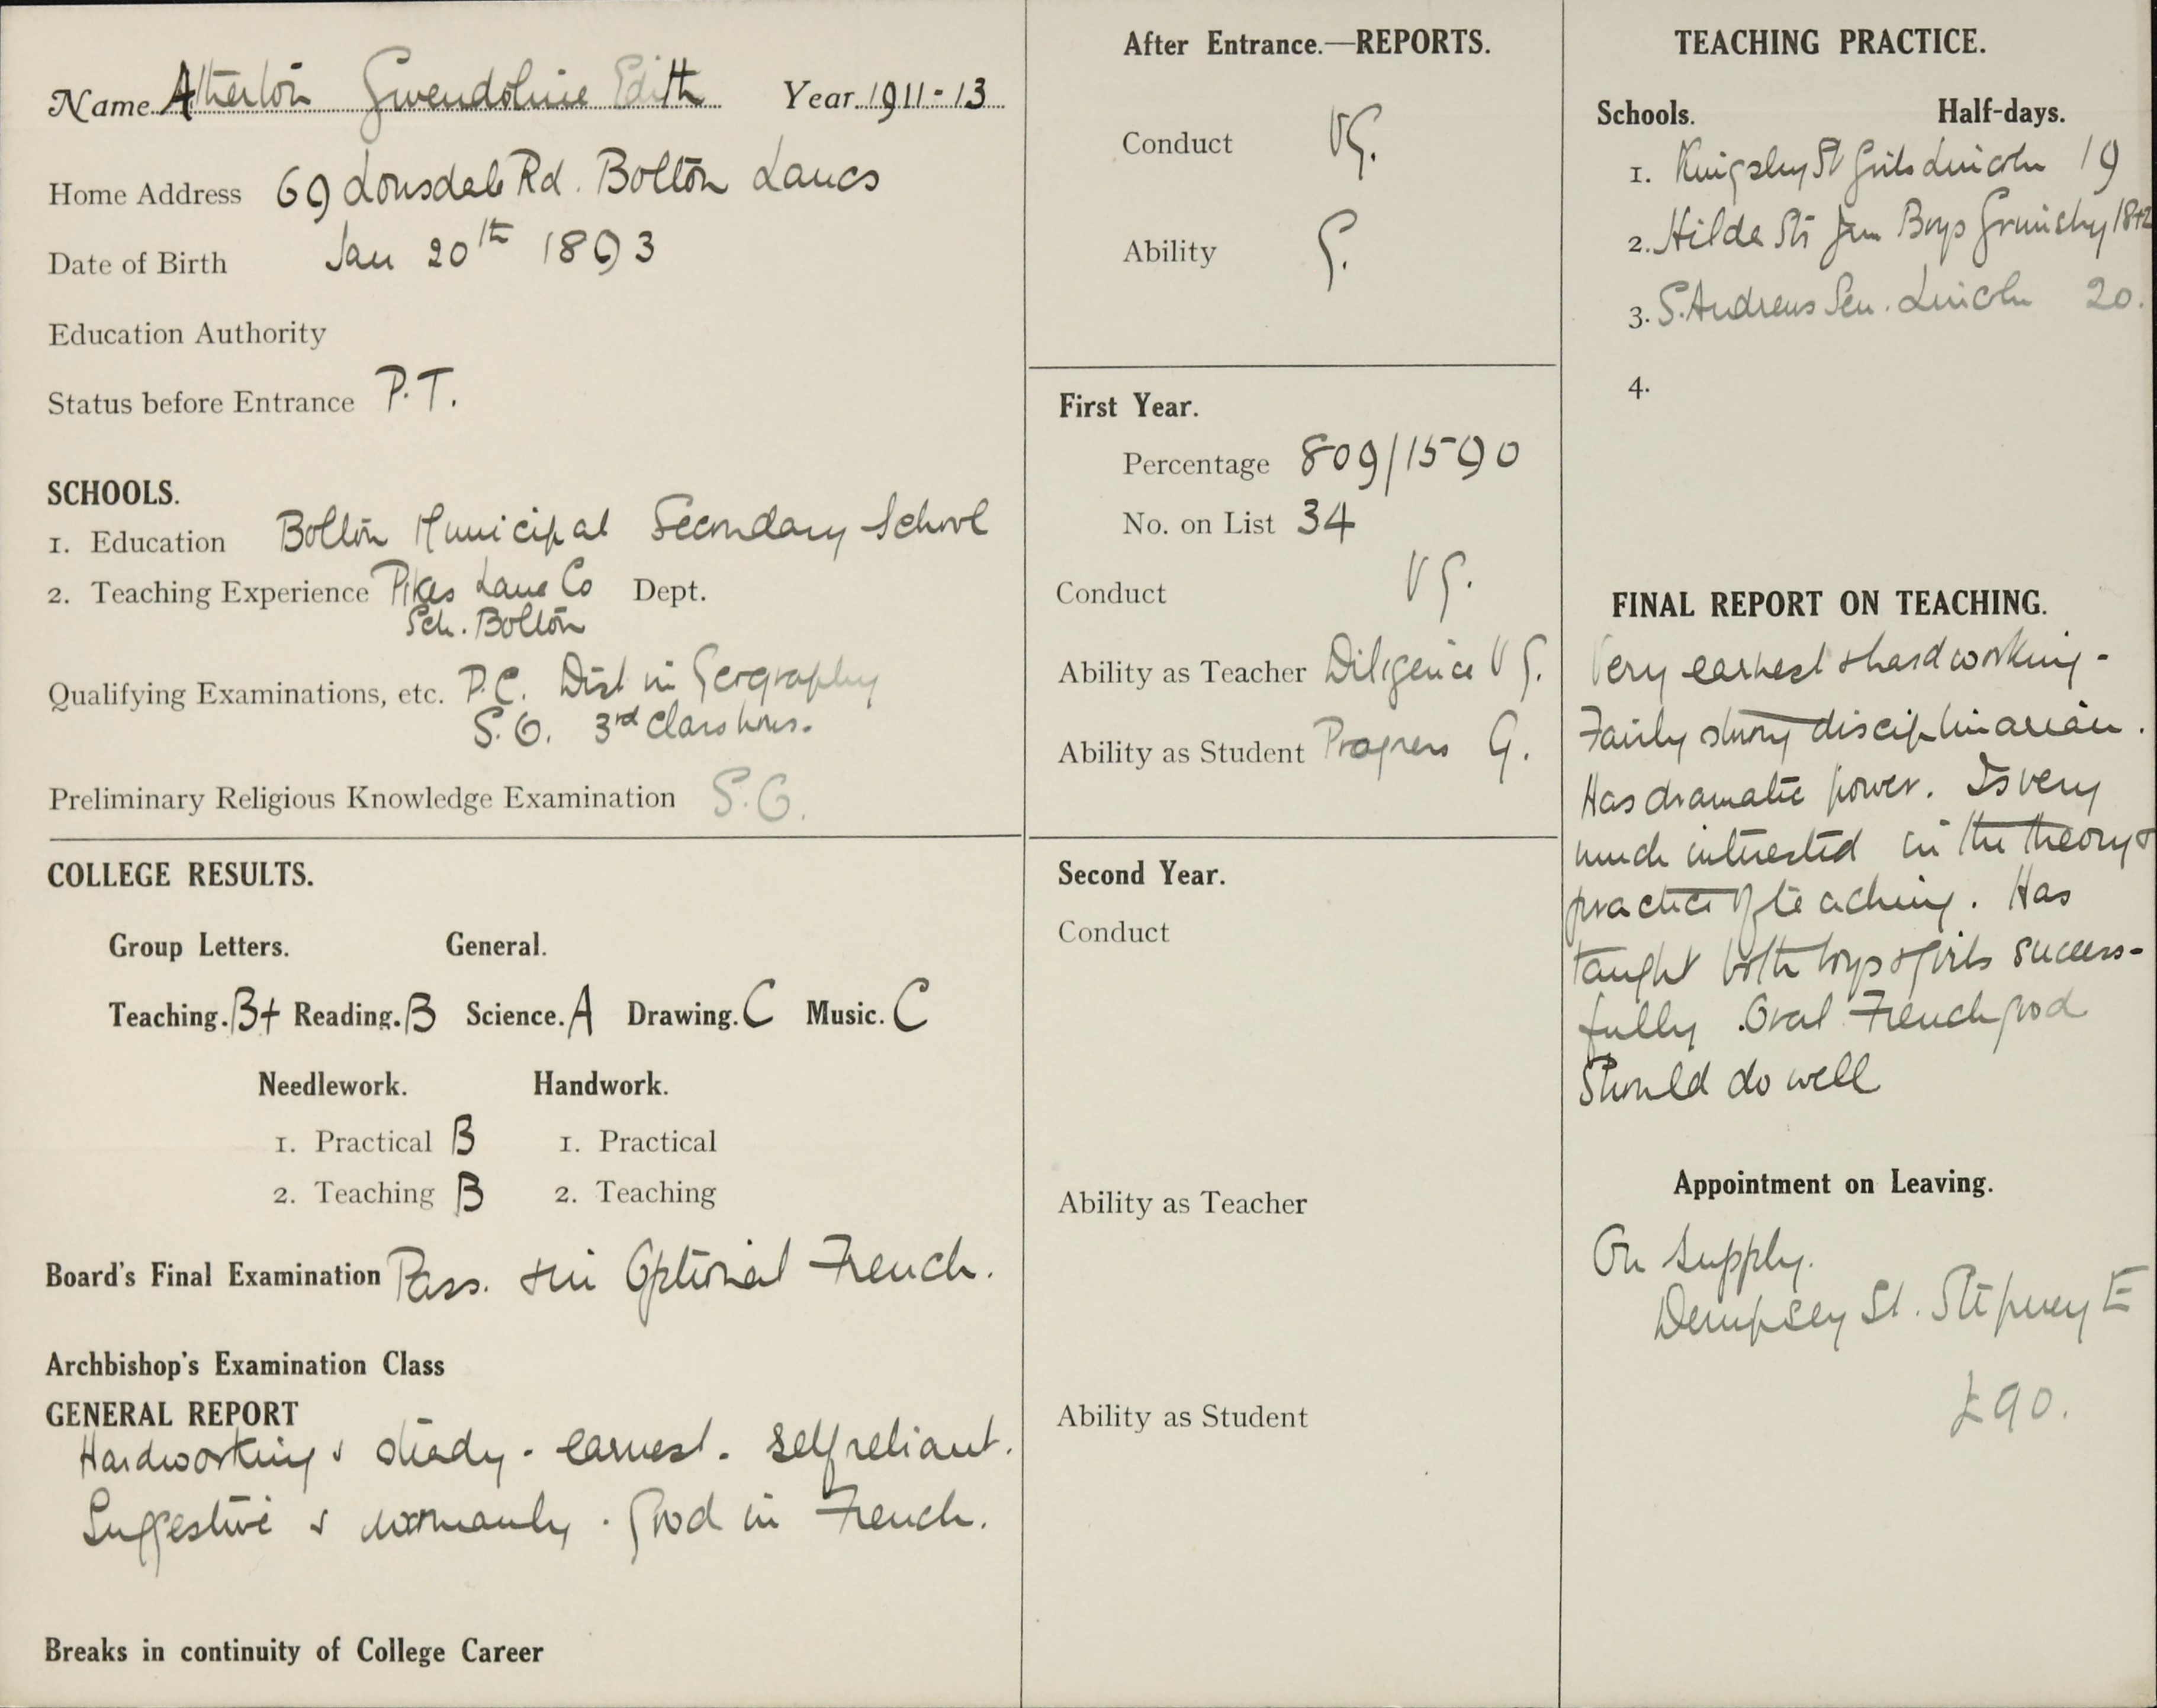 Name Atherton Gwendoline Edith Year 1911-13
Home Address 69 Lonsdale Rd. Bolton Lancs
Date of Birth Jan 20th 1893
Education Authority
Status before Entrance P.T.
SCHOOLS.
1. Education Bolton Municipal Secondary School
2. Teaching Experience Pikes Lane Co Dept.
Sch. Bolton
Qualifying Examinations, etc. P.C. Dist in Geography
S.G. 3rd Class hons.
Preliminary Religious Knowledge Examination S.G.
COLLEGE RESULTS.
Group Letters. General.
Teaching. B+ Reading. B Science. A Drawing. C Music. C
Needlework. Handwork.
1. Practical B 1. Practical
2. Teaching B 2. Teaching
Board's Final Examination Pass. & in Optional French.
Archbishop's Examination Class
GENERAL REPORT
Hardworking & steady - earnest - self reliant.
Suggestive & womanly. Good in French.
Breaks in continuity of College Career
After Entrance.—REPORTS.
Conduct VG.
Ability G.
First Year.
Percentage 809/1590
No. on List 34
Conduct VG.
Ability as Teacher Diligence VG.
Ability as Student Progress G.
Second Year.
Conduct
Ability as Teacher
Ability as Student
TEACHING PRACTICE.
Schools. Half-days.
1. Kingsley St Girls Lincoln 19
2. Hilda St Jun Boys Grimsby 18+2
3. S. Andrews Sen. Lincoln 20.
4.
FINAL REPORT ON TEACHING.
Very earnest & hardworking -
Fairly strong disciplinarian.
Has dramatic power. Is very
much interested in the theory &
practice of teaching. Has
taught both boys & girls success-
fully. Oral French good
Should do well
Appointment on Leaving.
On Supply.
Dempsey St. Stepney E
£90.